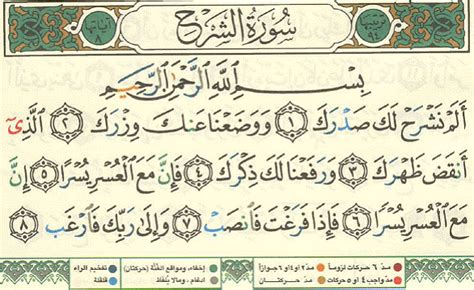 سُورَةُ الشَّرْحِ
بِسْمِ اللَّهِ الرَّحْمَٰنِ الرَّحِيمِ
أَلَمْ نَشْرَحْ لَكَ صَدْرَكَ ١ وَوَضَعْنَا عَنكَ وِزْرَكَ ٢ الَّذِي
أَنقَضَ ظَهْرَكَ ٣ وَرَفَعْنَا لَكَ ذِكْرَكَ ٤ فَإِنَّ مَعَ الْعُسْرِ يُسْرًا ٥ إِنَّ
مَعَ الْعُسْرِ يُسْرًا ٦ فَإِذَا فَرَغْتَ فَانصَبْ ٧ وَإِلَىٰ رَبِّكَ فَارْغَب ٨
مدّ ٦ حركات لزوماً مدّ ٢ أو ٤ أو ٦ جوازاً إخفاء، ومواقع الغنّة (حركتان) تفخيم الراء
مدّ واجب ٤ أو ٥ حركات مدّ حركتان إدغام، وما لا يُلفظ قلقلة